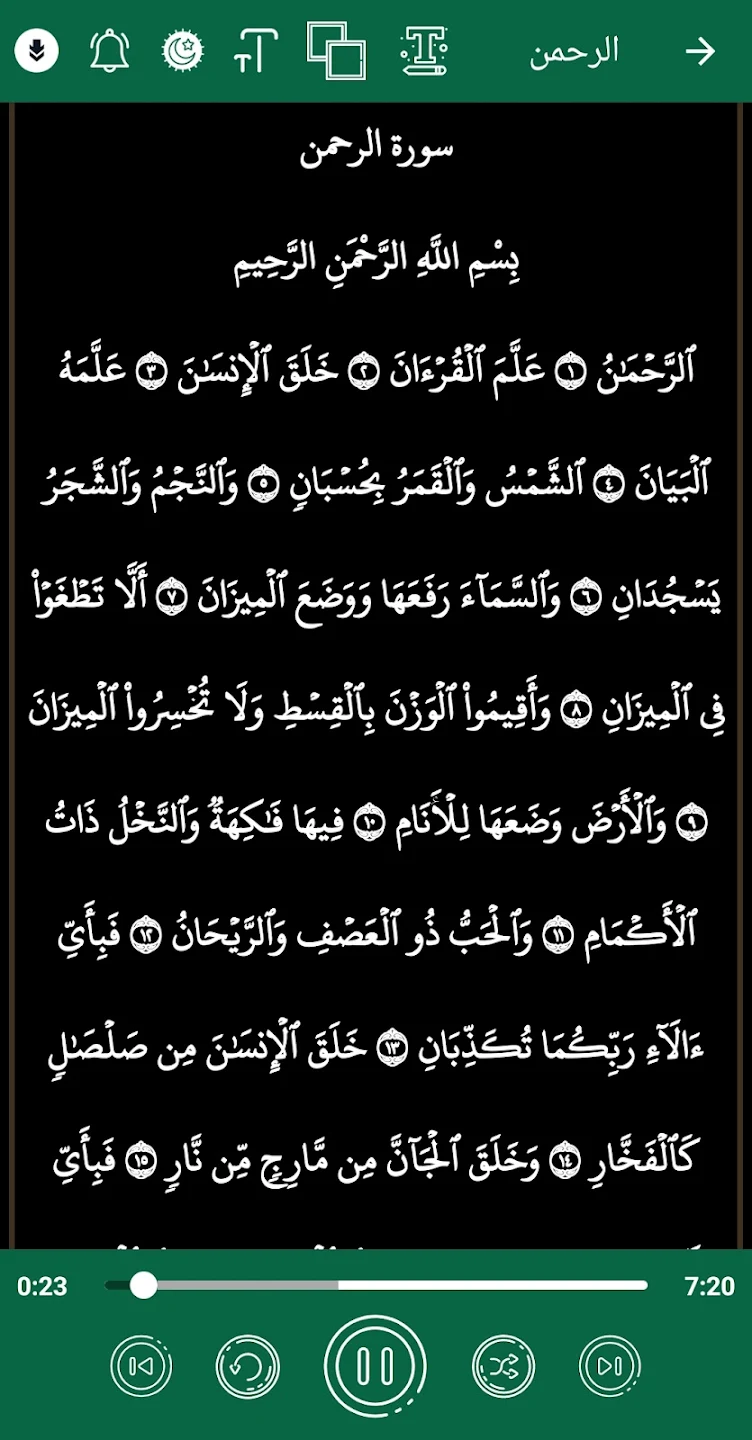 الرحمن
سورة الرحمن
بِسْمِ اللَّهِ الرَّحْمَنِ الرَّحِيمِ
ٱلرَّحْمَـٰنُ ١ عَلَّمَ ٱلْقُرْءَانَ ٢ خَلَقَ ٱلْإِنسَـٰنَ ٣ عَلَّمَهُ
ٱلْبَيَانَ ٤ ٱلشَّمْسُ وَٱلْقَمَرُ بِحُسْبَانٍ ٥ وَٱلنَّجْمُ وَٱلشَّجَرُ
يَسْجُدَانِ ٦ وَٱلسَّمَآءَ رَفَعَهَا وَوَضَعَ ٱلْمِيزَانَ ٧ أَلَّا تَطْغَوْا۟
فِى ٱلْمِيزَانِ ٨ وَأَقِيمُوا۟ ٱلْوَزْنَ بِٱلْقِسْطِ وَلَا تُخْسِرُوا۟ ٱلْمِيزَانَ
٩ وَٱلْأَرْضَ وَضَعَهَا لِلْأَنَامِ ١٠ فِيهَا فَـٰكِهَةٌ وَٱلنَّخْلُ ذَاتُ
ٱلْأَكْمَامِ ١١ وَٱلْحَبُّ ذُو ٱلْعَصْفِ وَٱلرَّيْحَانُ ١٢ فَبِأَىِّ
ءَالَآءِ رَبِّكُمَا تُكَذِّبَانِ ١٣ خَلَقَ ٱلْإِنسَـٰنَ مِن صَلْصَـٰلٍ
كَٱلْفَخَّارِ ١٤ وَخَلَقَ ٱلْجَآنَّ مِن مَّارِجٍ مِّن نَّارٍ ١٥ فَبِأَىِّ
0:23
7:20